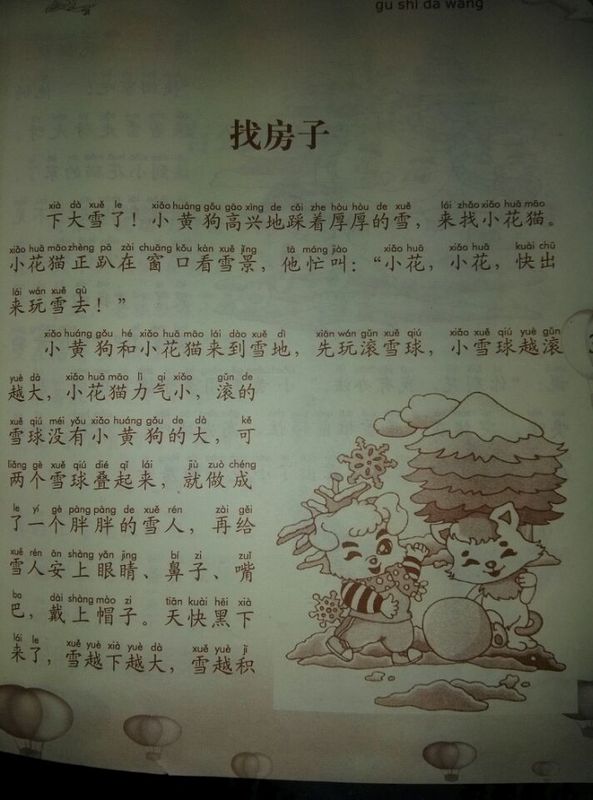 gu shi da wang
找房子
xià dà xuě le xiǎo huáng gǒu gāo xìng de cǎi zhe hòu hòu de xuě lái zhǎo xiǎo huā māo
下大雪了！小黄狗高兴地踩着厚厚的雪，来找小花猫。
xiǎo huā māo zhèng pā zài chuāng kǒu kàn xuě jǐng tā máng jiào xiǎo huā xiǎo huā kuài chū
小花猫正趴在窗口看雪景，他忙叫：“小花，小花，快出
lái wán xuě qù
来玩雪去！”
xiǎo huáng gǒu hé xiǎo huā māo lái dào xuě dì xiān wán gǔn xuě qiú xiǎo xuě qiú yuè gǔn
小黄狗和小花猫来到雪地，先玩滚雪球，小雪球越滚
yuè dà xiǎo huā māo lì qi xiǎo gǔn de
越大，小花猫力气小，滚的
xuě qiú méi yǒu xiǎo huáng gǒu de dà kě
雪球没有小黄狗的大，可
liǎng gè xuě qiú dié qǐ lái jiù zuò chéng
两个雪球叠起来，就做成
le yí gè pàng pàng de xuě rén zài gěi
了一个胖胖的雪人，再给
xuě rén ān shàng yǎn jīng bí zi zuǐ
雪人安上眼睛、鼻子、嘴
ba dài shàng mào zi tiān kuài hēi xià
巴，戴上帽子。天快黑下
lái le xuě yuè xià yuè dà xuě yuè jī
来了，雪越下越大，雪越积